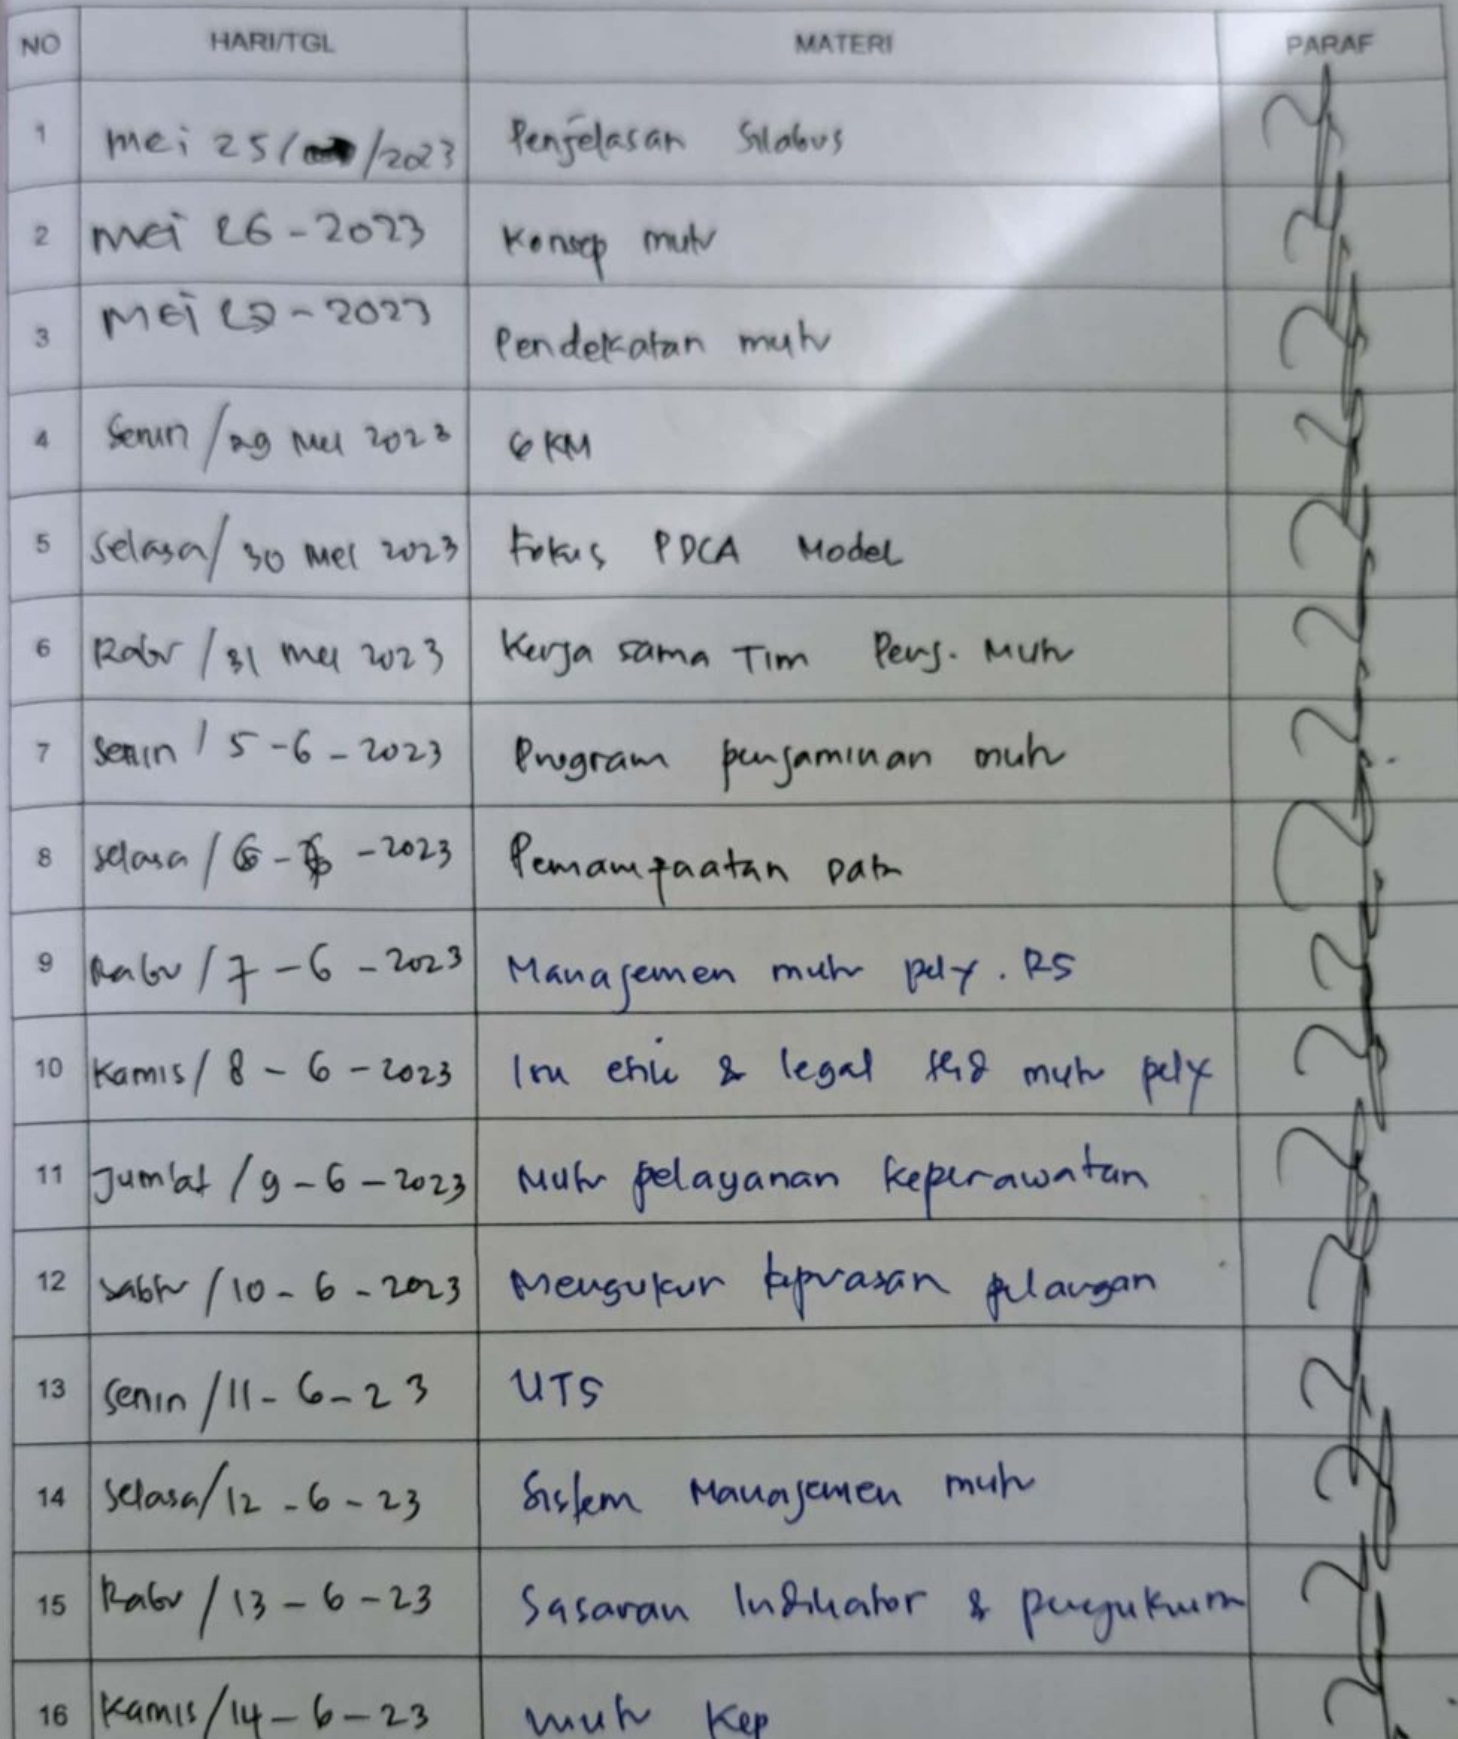 NO HARI/TGL MATERI PARAF
1 Mei 25/ /2023 Penjelasan Silabus
2 Mei 26-2023 Konsep mutu
3 Mei -2023 Pendekatan mutu
4 Senin/29 Mei 2023 6 KM
5 Selasa/30 Mei 2023 Fokus PDCA Model
6 Rabu/31 Mei 2023 Kerja sama Tim Penj. Mutu
7 Senin/5-6-2023 Program penjaminan mutu
8 Selasa/6-6-2023 Pemamfaatan Data
9 Rabu/7-6-2023 Manajemen mutu pely. RS
10 Kamis/8-6-2023 Isu etik & legal mutu pely
11 Jum'at/9-6-2023 Mutu pelayanan keperawatan
12 Sabtu/10-6-2023 Mengukur kepuasan pelanggan
13 Senin/11-6-23 UTS
14 Selasa/12-6-23 Sistem Manajemen mutu
15 Rabu/13-6-23 Sasaran Indikator & pengukuran
16 Kamis/14-6-23 Mutu Kep